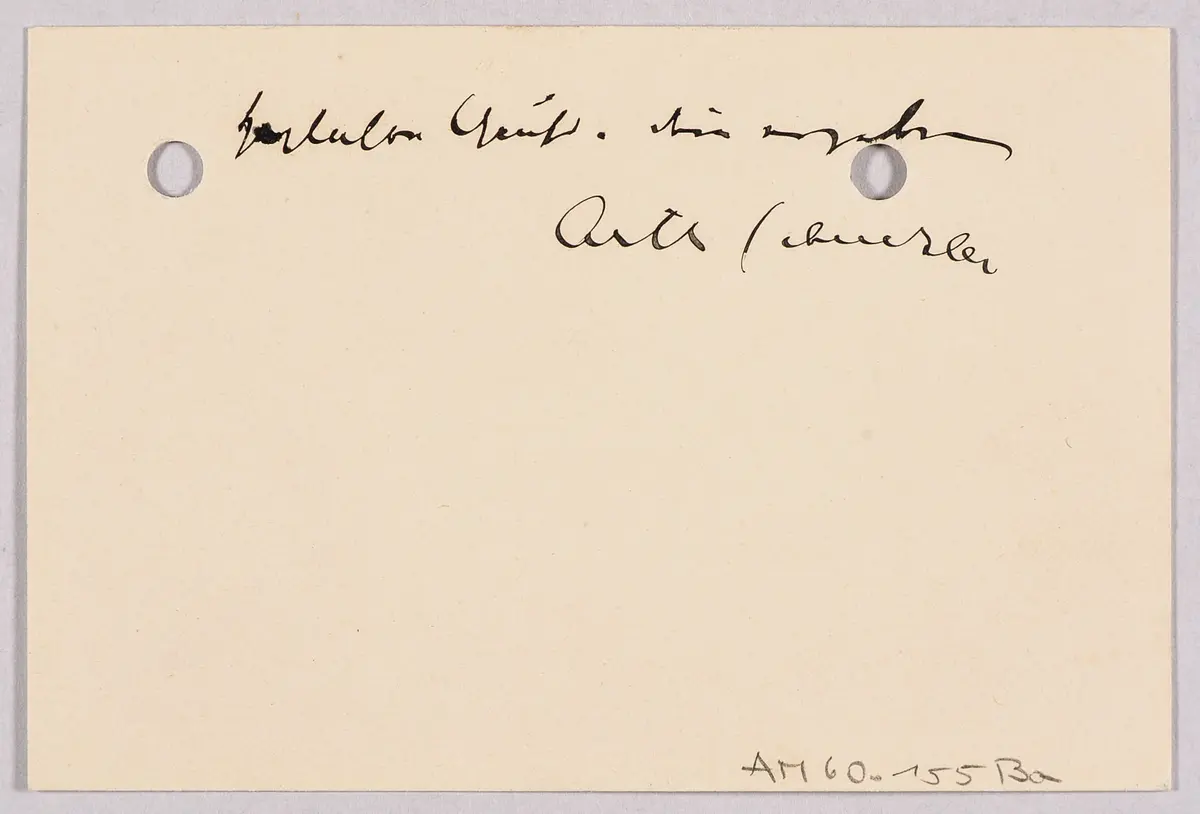 herzlichen Gruß. Ihr ergebener
Arthur Schnitzler
AM 60.155 Ba